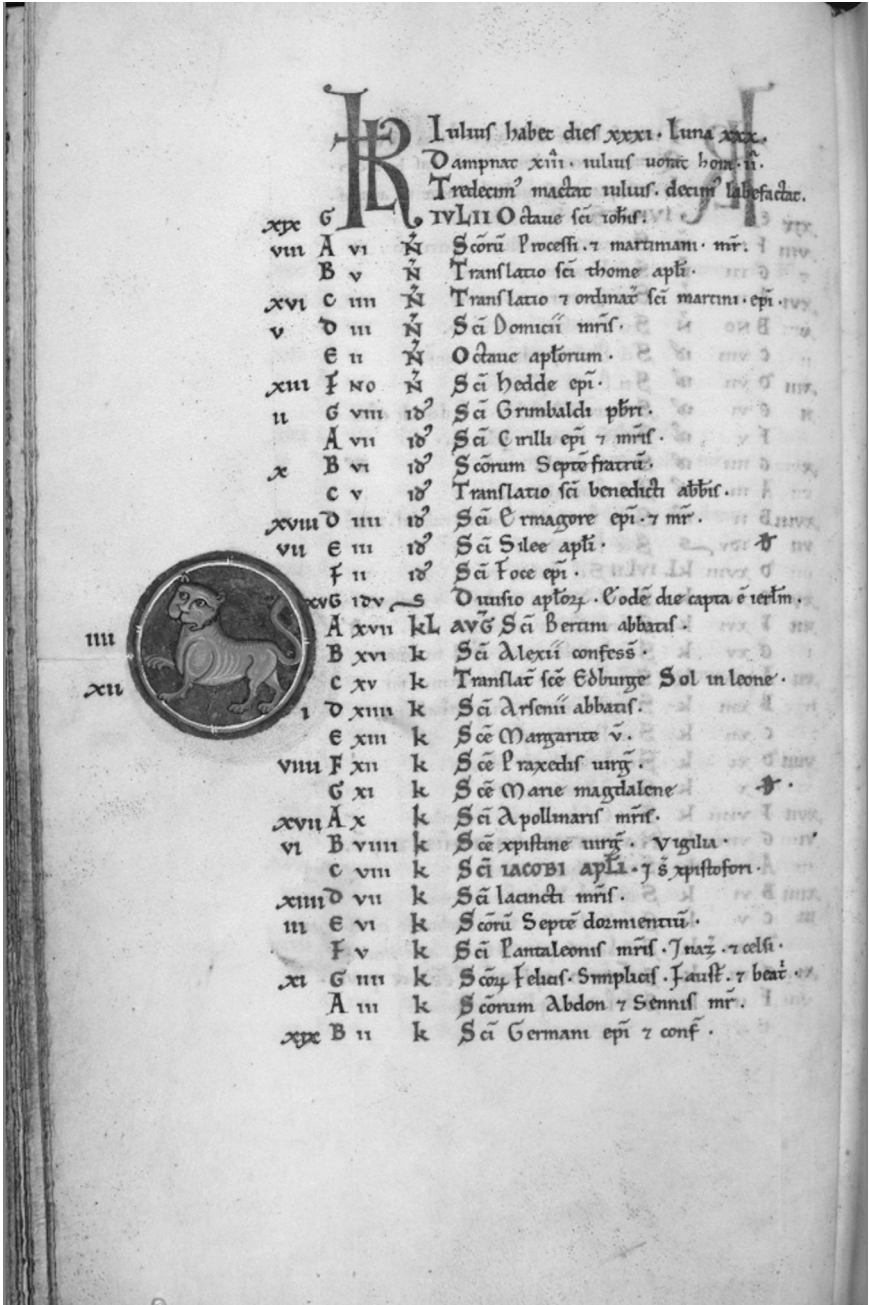 KL Iulius habet dies xxxi. Luna xxx.
Dampnat xiii. iulius uorat hora. ii.
Tredecim' mactat iulius. decim' labefactat.
xix G IVLII Octaue sci iohis.
viii A vi N Scorū Processi. ⁊ martiniani. mr.
B v N Translatio sci thome apli.
xvi C iiii N Translatio ⁊ ordinat sci martini. epi.
v D iii N Sci Domicii mris.
E ii N Octaue aplorum.
xiii F NO N Sci hedde epi.
ii G viii id' Sci Grimbaldi pbri.
A vii id' Sci Cirilli epi ⁊ mris.
x B vi id' Scorum Septē fratrū.
C v id' Translatio sci benedicti abbis.
xviii D iiii id' Sci Ermagore epi. ⁊ mr.
vii E iii id' Sci Silee apli.
F ii id' Sci Foce epi.
xv G idv s Diuisio aplorꝝ. Eodē die capta ē ierlm.
iiii A xvii kL AVG Sci Bertini abbatis.
B xvi k Sci Alexii confess.
xii C xv k Translat scē Edburge Sol in leone.
i D xiiii k Sci Arsenii abbatis.
E xiii k Scē Margarite v.
viiii F xii k Scē Praxedis uirg.
G xi k Scē Marie magdalene
xvii A x k Sci Apollinaris mris.
vi B viiii k Scē xpistine uirg. Vigilia.
C viii k Sci IACOBI APLI. ⁊ s xpistofori.
xiiii D vii k Sci Iacincti mris.
iii E vi k Scorū Septē dormientiū.
F v k Sci Pantaleonis mris. ⁊ naz. ⁊ celsi.
xi G iiii k Scorꝝ Felicis. Simplicis. Faust. ⁊ beat.
A iii k Scorum Abdon ⁊ Sennis mr.
xix B ii k Sci Germani epi ⁊ conf.